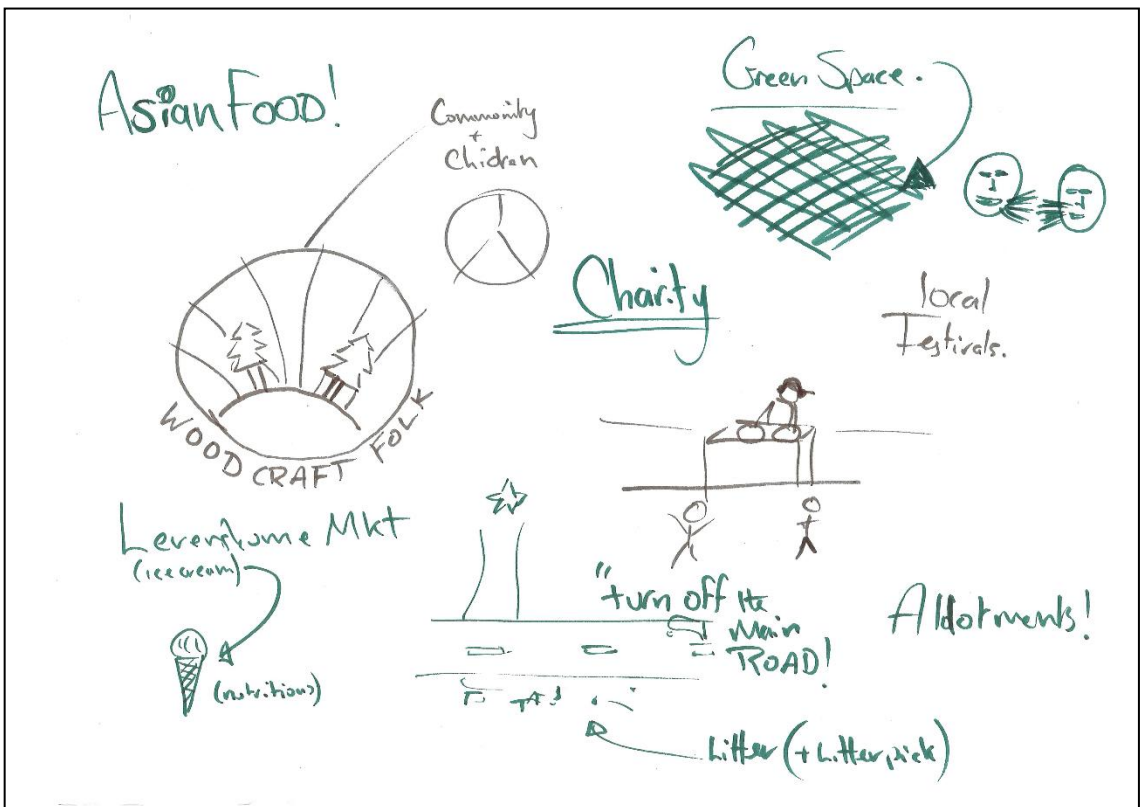 Asian Food!
Community
+
Chidren
Green Space.
Charity
local
Festivals.
WOODCRAFT FOLK
Levenshulme Mkt
(ice cream)
(nutritious)
"turn off the
Main
ROAD!
Allotments!
Litter (+ Litterpick)